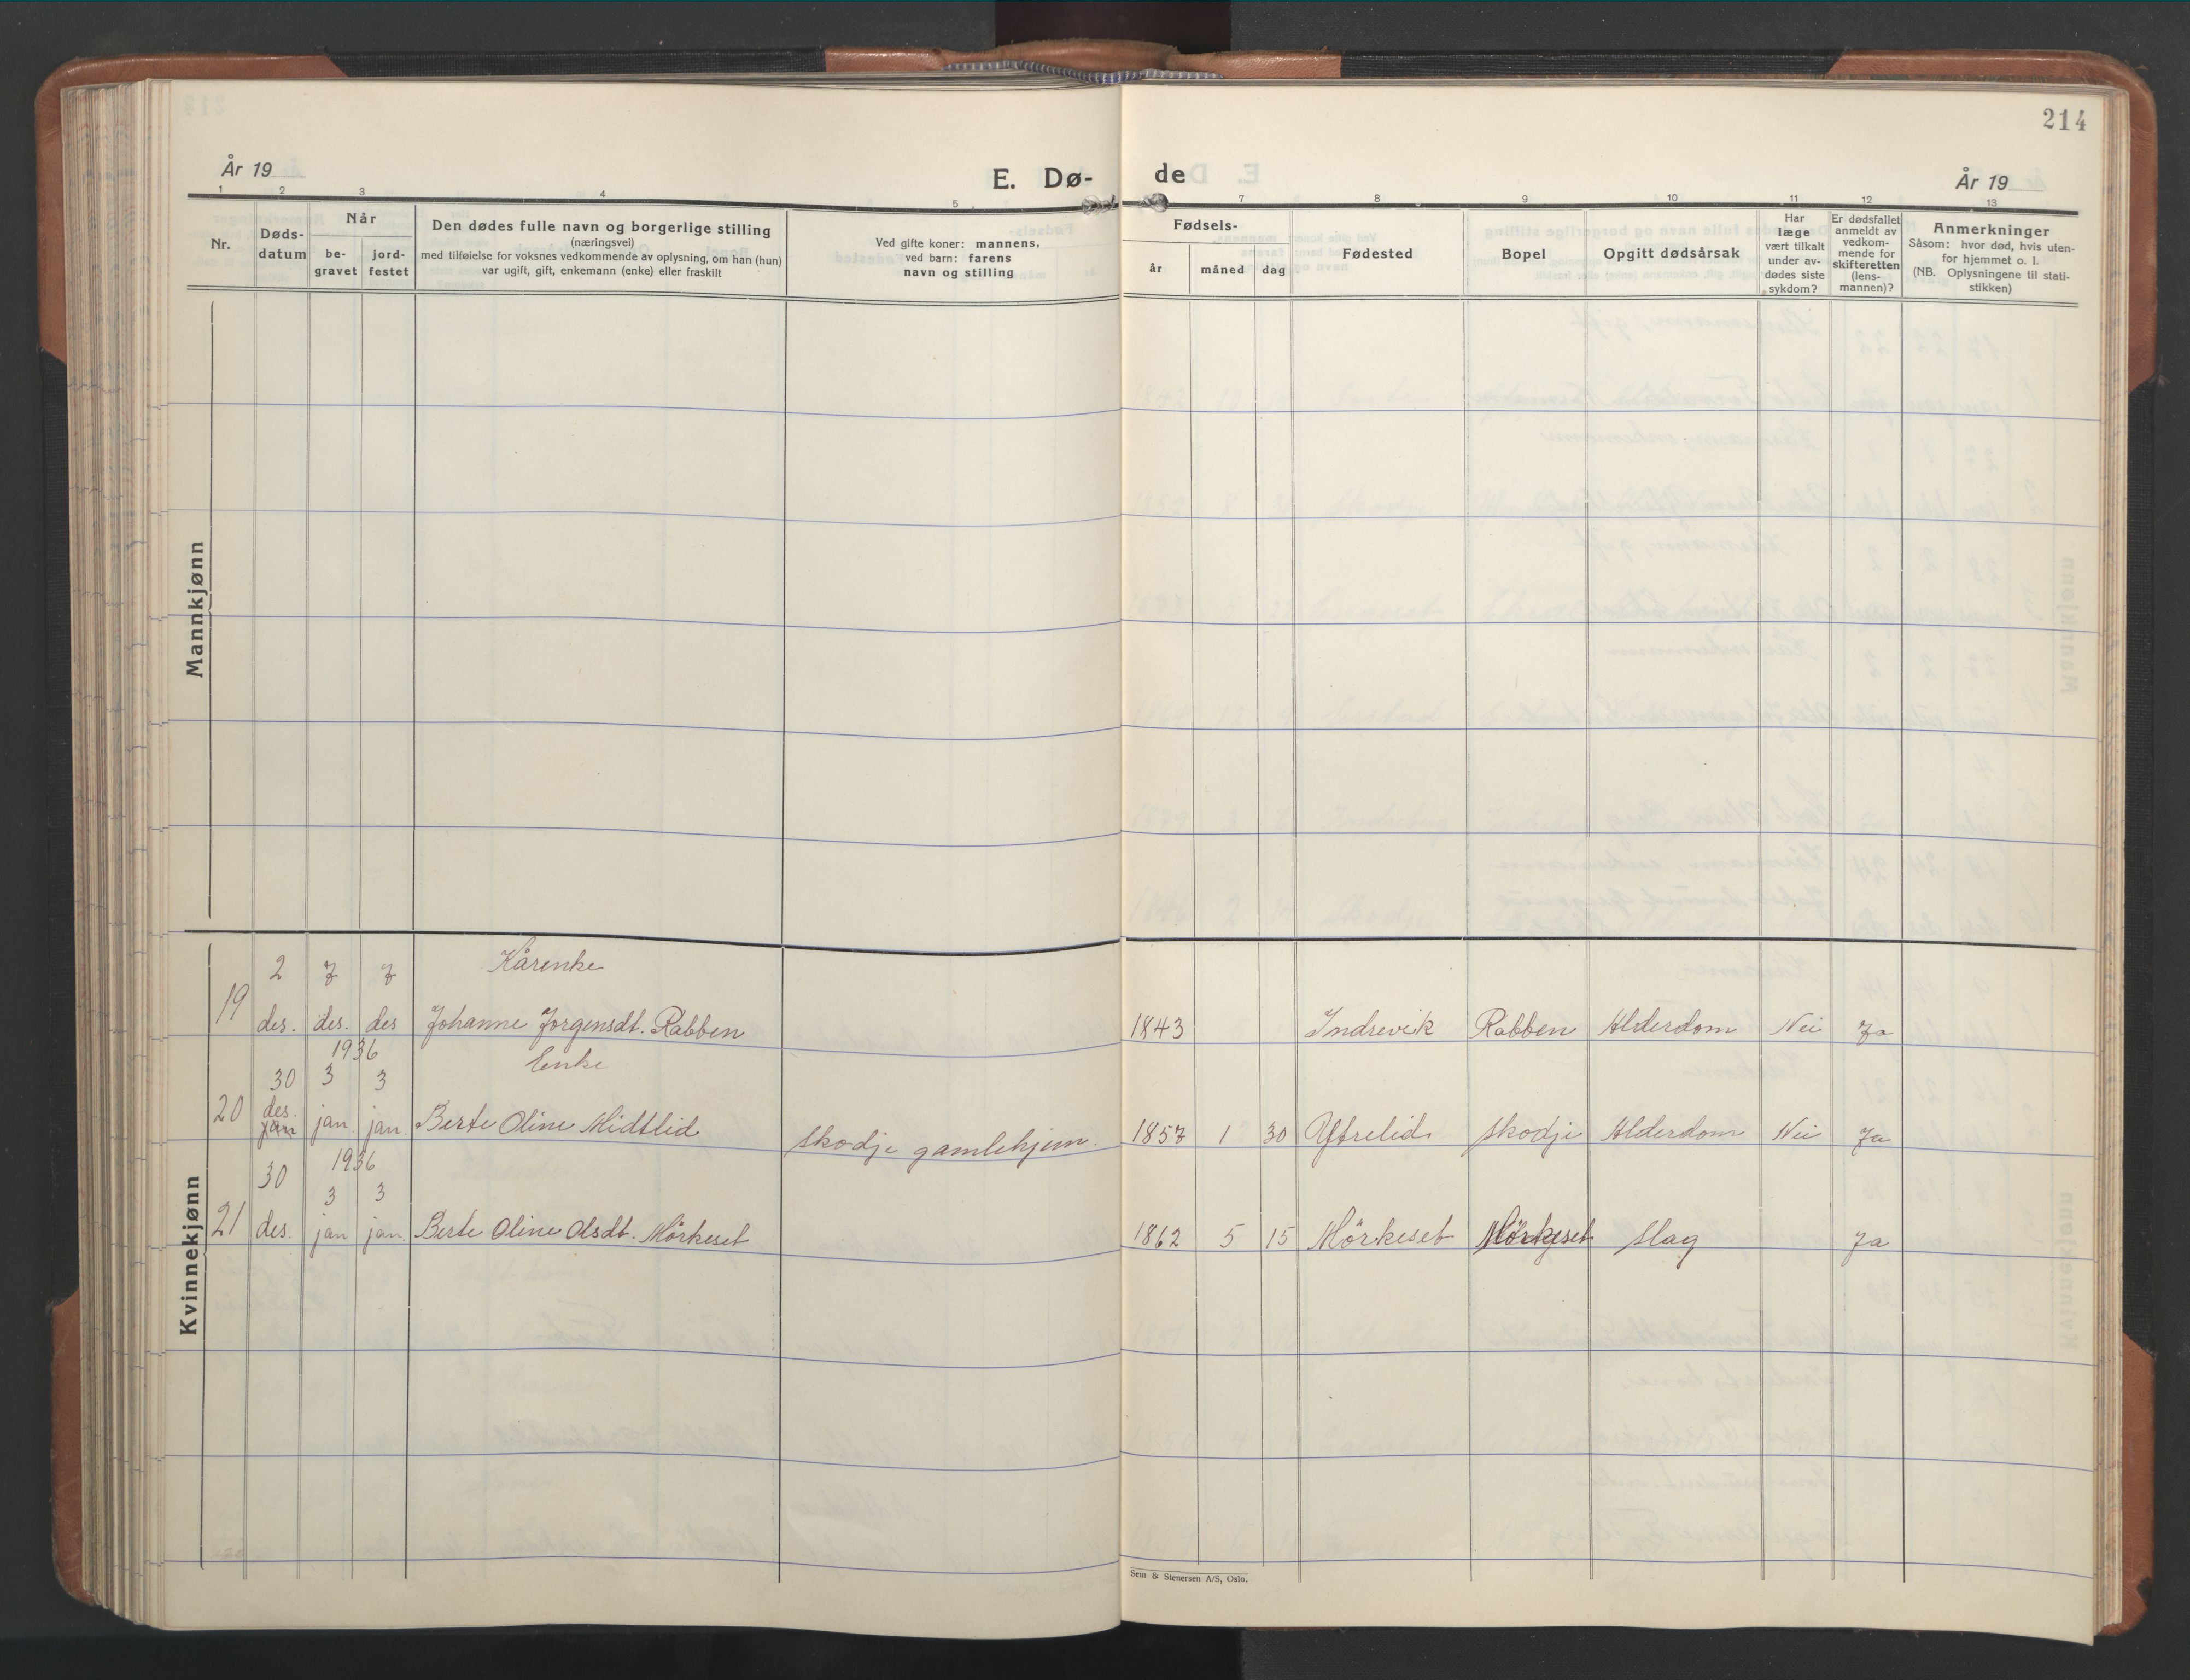 214
År 19
E. Dø-
de
År 19
1 2 3 4 5 7 8 9 10 11 12 13
Nr.
Døds-
datum
Når
be-
gravet
jord-
festet
Den dødes fulle navn og borgerlige stilling
(næringsvei)
med tilføielse for voksnes vedkommende av oplysning, om han (hun)
var ugift, gift, enkemann (enke) eller fraskilt
Ved gifte koner: mannens,
ved barn: farens
navn og stilling
Fødsels-
år
måned
dag
Fødested
Bopel
Opgitt dødsårsak
Har
læge
vært tilkalt
under av-
dødes siste
sykdom?
Er dødsfallet
anmeldt av
vedkom-
mende for
skifteretten
(lens-
mannen)?
Anmerkninger
Såsom: hvor død, hvis uten-
for hjemmet o. l.
(NB. Oplysningene til stati-
stikken)
Mannkjønn
Kvinnekjønn
2 7 7 Kårenke
19 des. des. des Johanne Jorgensdt. Rabben 1843 Indrevik Rabben Alderdom Nei Ja
1936
30 3 3 Enke
des.
20 jan jan. jan. Berte Oline Midtlid Skodje gamlehjem. 1857 1 30 Ytrelid Skodje Alderdom Nei Ja
1936
30 3 3
21 des. jan jan. Berte Oline Olsdt. Mörkeset 1862 5 15 Mörkeset Mörkeset Slag Ja
Sem & Stenersen A/S, Oslo.